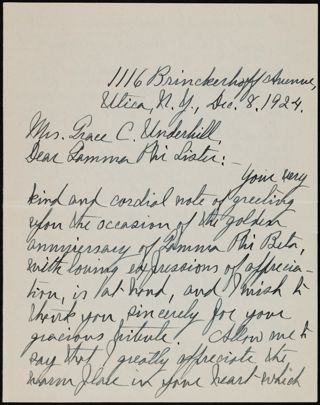 1116 Brinckerhoff Avenue,
Utica, N.Y., Dec. 8. 1924.
Mrs. Grace C. Underhill,
Dear Gamma Phi Sister:-
Your very
kind and cordial note of greeting
upon the occasion of the golden
anniversary of Gamma Phi Beta,
with loving expressions of apprecia-
tion, is at hand, and I wish to
thank you sincerely for your
gracious tribute. Allow me to
say that I greatly appreciate the
warm place in your heart which